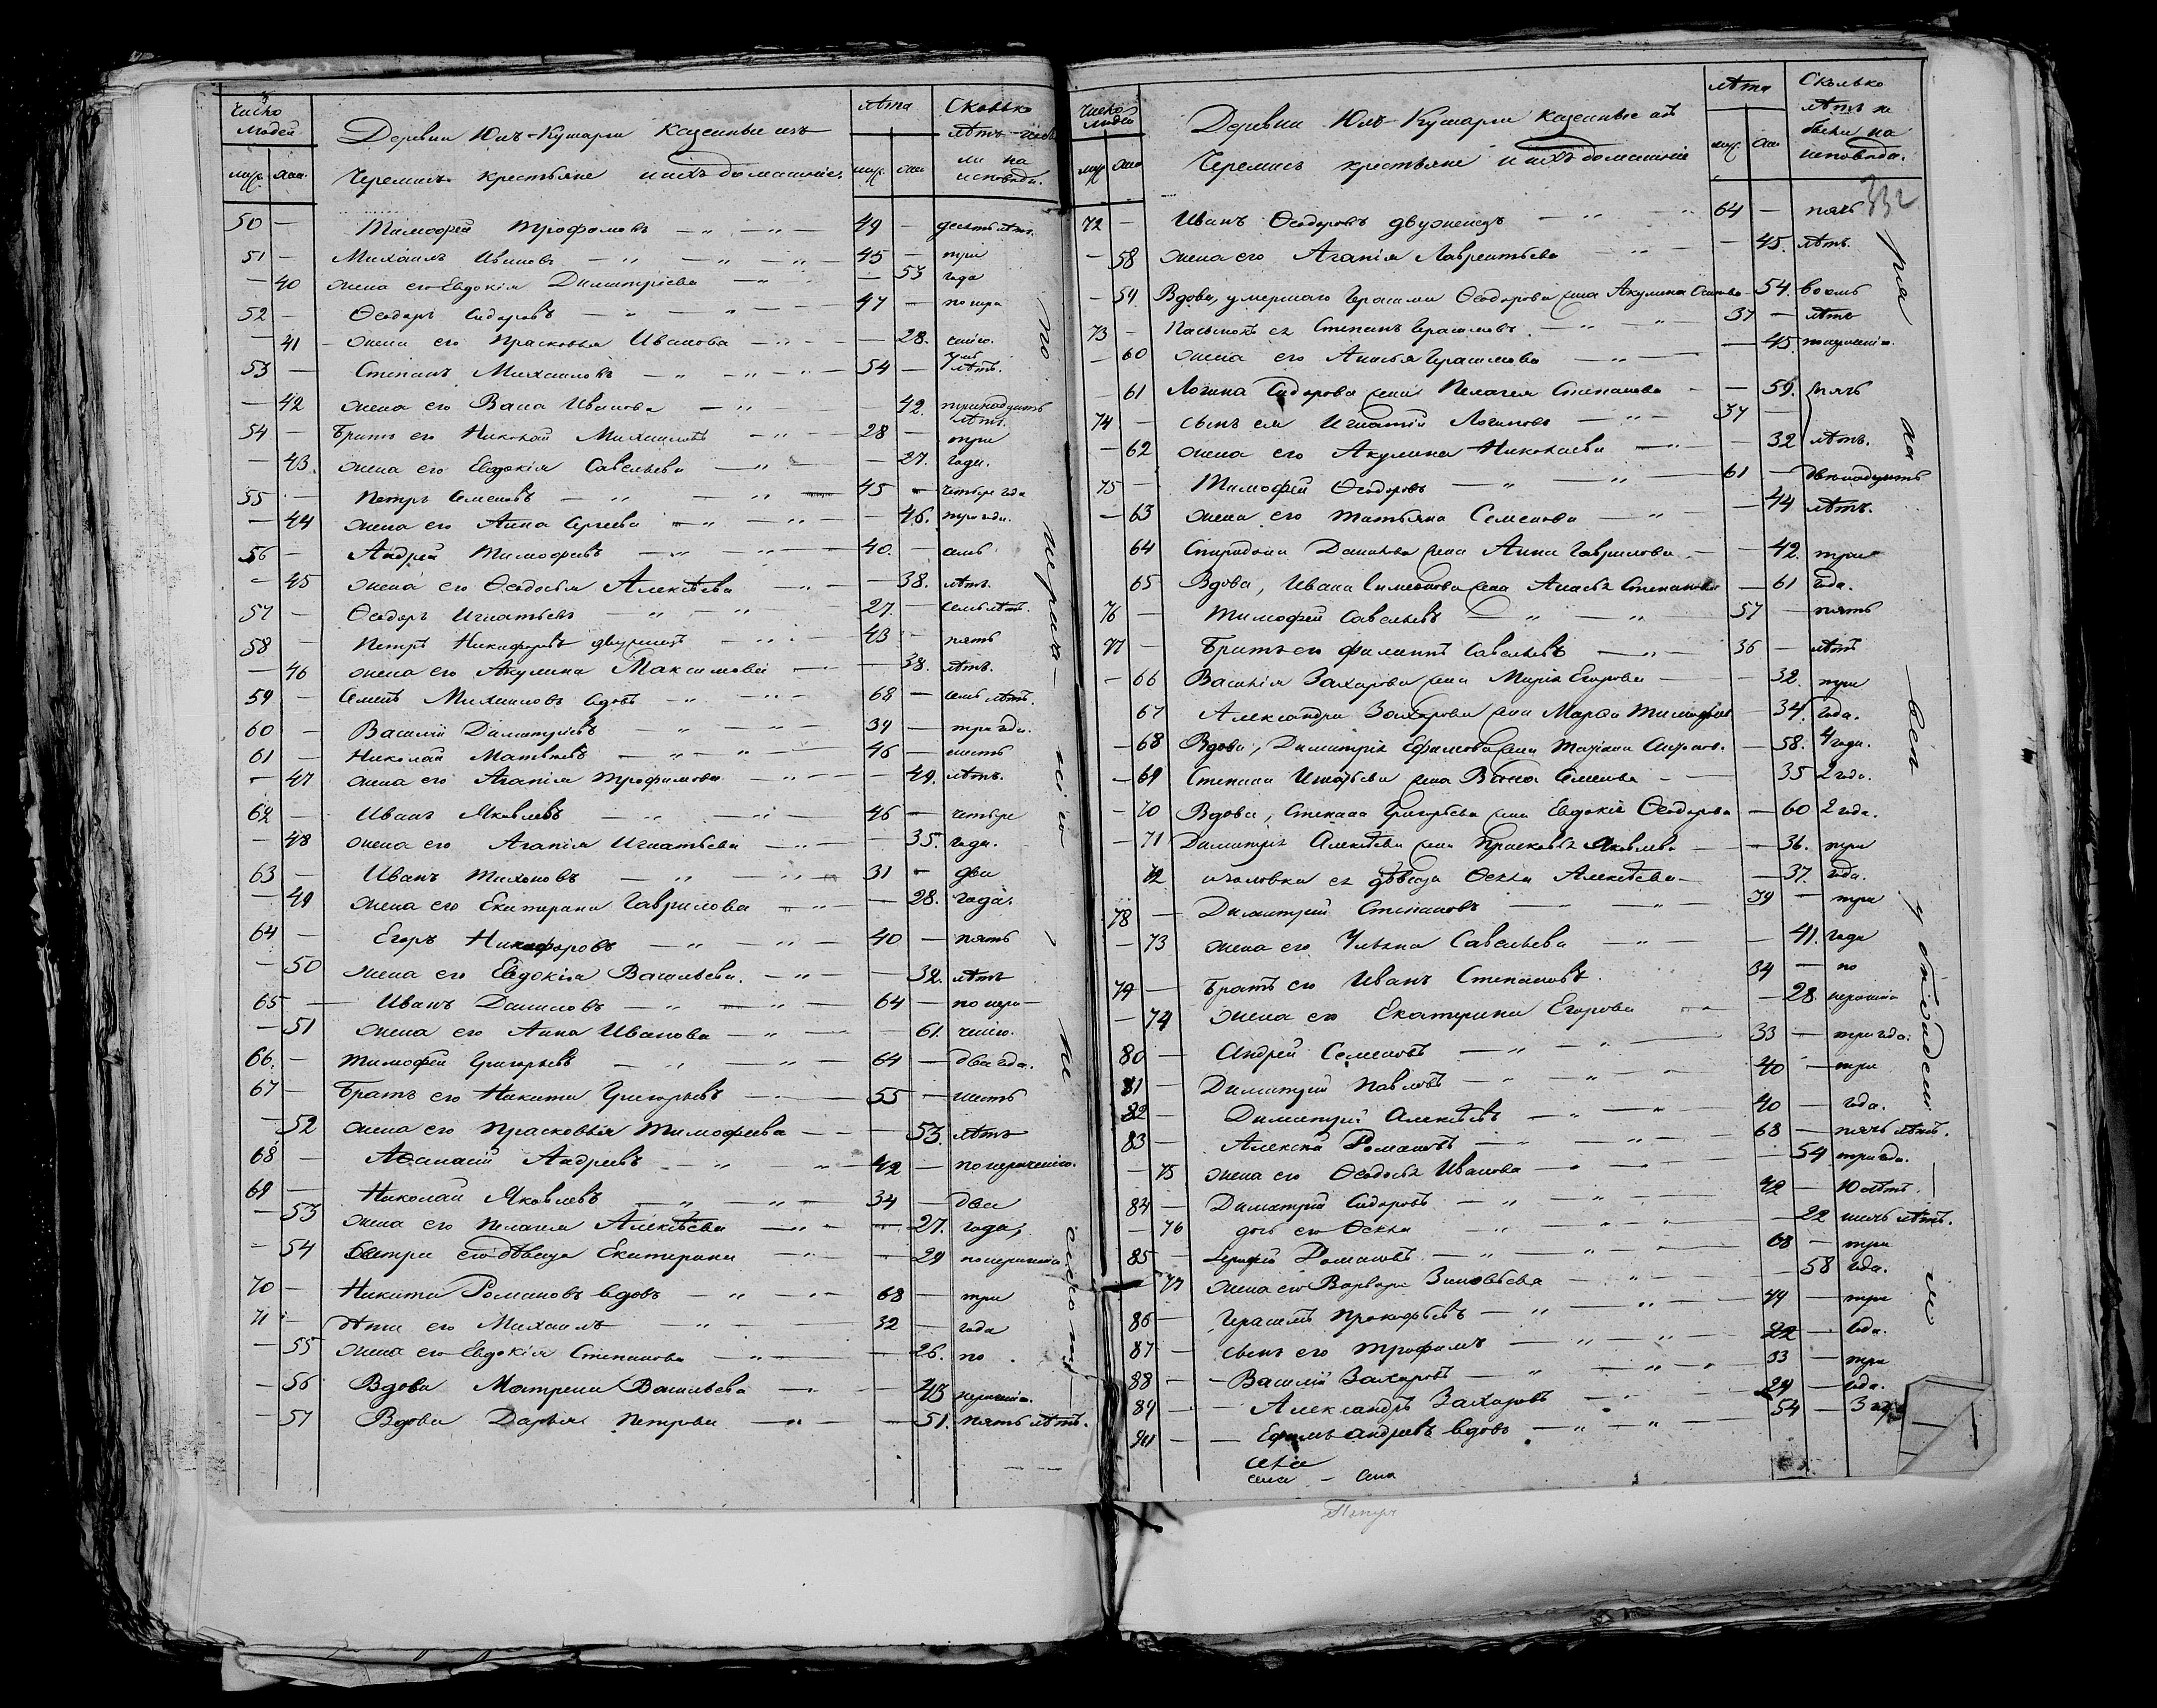 Число людей
Деревни Юмъ-Кушарги казенные изъ
лѣта
Сколько лѣтъ
ли на исповѣди.
муж. жен.
Черемисъ крестьяне и ихъ домашніе.
муж. жен.
50 — Тимофей Трофимовъ 49 — десять лѣтъ.
51 — Михаилъ Ивановъ 45 — три
— 40 жена его Евдокія Димитріева — 53 года
52 — Ѳеодоръ Сидоровъ 47 —
— 41 жена его Прасковья Иванова — 28.
53 — Степанъ Михаиловъ 54 — лѣтъ.
— 42 жена его Васа Иванова — 42. тринадцать лѣтъ.
54 — Братъ его Николай Михаиловъ 28 — три
— 43. жена его Евдокія Савельева — 27. года.
55 — Петръ Семеновъ 45 — четыре года
— 44 жена его Анна Сергеева — 46. три года.
56 — Андрей Тимофеевъ 40. — семь
— 45 жена его Ѳеодосья Алексѣева — 38. лѣтъ.
57 — Ѳеодоръ Игнатьевъ 27. — семь лѣтъ.
58 — Петръ Никифоровъ двуженецъ 43 — пять
— 46 жена его Акулина Максимова — 38. лѣтъ.
59 — Семенъ Михаиловъ вдовъ 68 — семь лѣтъ.
60 — Василій Димитріевъ 39 — три года.
61 — Николай Матвѣевъ 46 — шесть
— 47 жена его Агапія Трофимова — 49. лѣтъ.
62 — Иванъ Яковлевъ 46 — четыре
— 48 жена его Агапія Игнатьева — 35. года.
63 — Иванъ Тихоновъ 31 — два
— 49 жена его Екатерина Гаврилова — 28. года.
64 — Егоръ Никифоровъ 40 — пять
— 50 жена его Евдокія Васильева. — 32. лѣтъ
65 — Иванъ Даниловъ 64 — по нера-
— 51 жена его Анна Иванова — 61. ченію.
66. — Тимофей Григорьевъ 64 — два года.
67 — Братъ его Никита Григорьевъ 55 — шесть
— 52 жена его Прасковья Тимофеева — 53. лѣтъ
68 — Аѳанасій Андреевъ 42 — по нераченію.
69 — Николай Яковлевъ 34 — два
— 53 жена его Пелагея Алексѣева — 27. года,
— 54 сестра его дѣвица Екатерина — 29
70 — Никита Романовъ вдовъ 68 — три
71 — дѣти его Михаилъ 32 — года
— 55 жена его Евдокія Степанова — 26. по
— 56 Вдова Матрена Васильева — 43
— 57 Вдова Дарья Петрова — 51. пять лѣтъ.
Число людей
Деревни Юмъ-Кушарги казенные изъ
лѣта
Сколько лѣтъ не были на исповѣди.
муж. жен.
Черемисъ крестьяне и ихъ домашніе
муж. жен.
332
72 — Иванъ Ѳеодоровъ двуженецъ 64 — пять
— 58 жена его Агапія Лаврентьева — 45. лѣтъ.
— 59. Вдова, умершаго Герасима Ѳеодорова жена Акулина Осипова — 54. восемь
73 — Пасынокъ ея Степанъ Герасимовъ. 37 — лѣтъ
— 60 жена его Анисья Герасимова — 45.
— 61 Логина Сидорова жена Пелагея Степанова — 59. пять
74 — сынъ ея Игнатій Логиновъ 37 —
— 62 жена его Акулина Николаева — 32 лѣтъ.
75 — Тимофей Ѳеодоровъ 61 — двенадцать
— 63 жена его Татьяна Семенова — 44 лѣтъ.
64 Спиридона Данилова жена Анна Гаврилова — 42. три
65 Вдова, Ивана Симеонова жена Анисья Степанова — 61 года.
76 — Тимофей Савельевъ 57 — пять
77 — Братъ его Филиппъ Савельевъ 36 — лѣтъ
— 66 Василія Захарова жена Марія Егорова — 32. три
67 Александра Захарова жена Марѳа Тимофеева — 34. года.
— 68 Вдова, Димитрія Ефимова жена — 58. 4 года.
— 69 Степана Игнатьева жена Васа Семенова — 35 2 года.
— 70 Вдова, Степана Григорьева жена Евдокія Ѳеодорова — 60 2 года.
— 71 Димитрія Алексѣева жена Прасковья Яковлева — 36. три
72 золовка ея дѣвица Ѳекла Алексѣева — 37. года.
78 — Димитрій Степановъ 39 — три
— 73 жена его Ульяна Савельева — 41. года
79 — Братъ его Иванъ Степановъ 34 — по
— 74 жена его Екатерина Егорова — 28.
80 — Андрей Семеновъ 33 — три года.
81 — Димитрій Павловъ 40 — три
82 — Димитрій Алексѣевъ 40 — года.
83 — Алексѣй Романовъ 68 — пять лѣтъ.
— 75 жена его Ѳеодосья Иванова — 54 три года.
84 — Димитрій Сидоровъ 42 — 10 лѣтъ.
— 76 дочь его Ѳекла — 22 шесть лѣтъ.
85 — Сергей Романовъ 68 — три
— 77 жена его Варвара Зиновьева — 58 года.
86 — Герасимъ Прокофьевъ 44 — три
87 — сынъ его Трофимъ 22 — года.
88 — Василій Захаровъ 33 — три
89 — Александръ Захаровъ 29 — года.
90 — Ефимъ Андреевъ вдовъ 54 — 3
Петръ